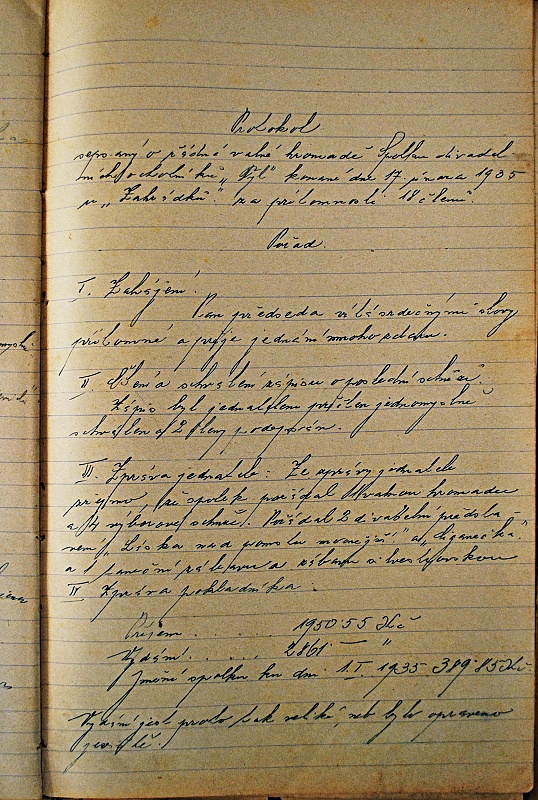 Protokol
sepsaný o řádné valné hromadě Spolku divadel-
ních ochotníků „Tyl" konané dne 17. února 1935
u „Zahrádků" za přítomnosti 18 členů.
Pořad.
I. Zahájení.
Pan předseda vítá srdečnými slovy
přítomné a přeje jednání mnoho zdaru.
II. Čtení a schválení zápisu o poslední schůzi.
Zápis byl jednatelem přečten jednomyslně
schválen a 2 členy podepsán.
III. Zpráva jednatele: Ze zprávy jednatele
zřejmo, že spolek pořádal 1 valnou hromadu
a 4 výborové schůze. Pořádal 2 divadelní předsta-
vení „Láska nad pomstu mocnější" a „Cganečka"
a 1 taneční zábavu a zábavu silvestrovskou
IV Zpráva pokladníka:
Příjem . . . . . 1950·55 Kč
Vydání . . . . . 2861 — "
Jmění spolku ku dni 1.I. 1935 389·85 Kč.
Vydání jest proto tak veliké, neb bylo opraveno
jeviště.